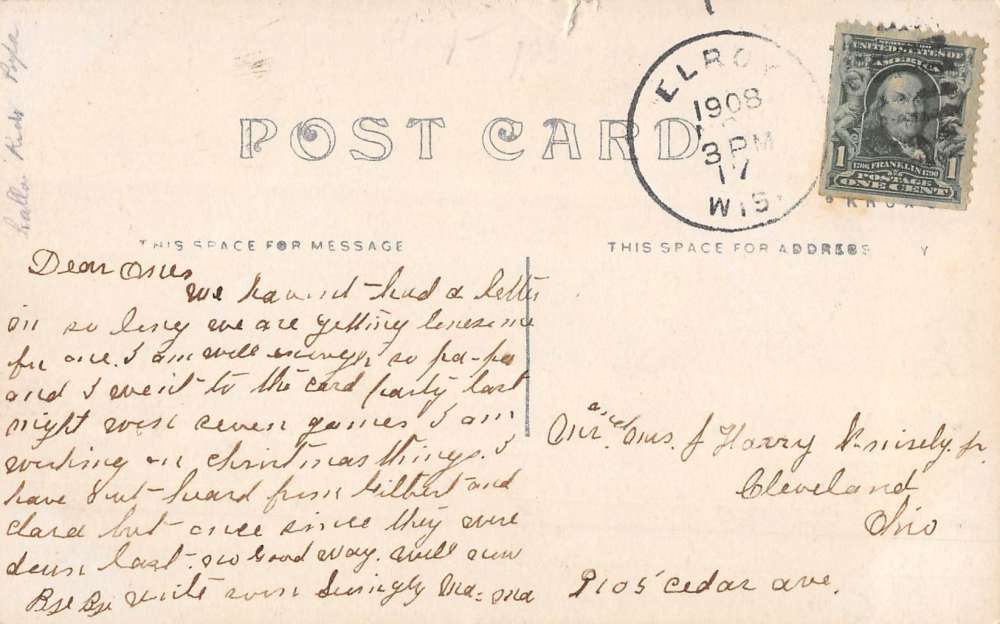 hallo Kids Pope
POST CARD
ELROY
1908
3 PM
17
WIS.
UNITED STATES OF
AMERICA
1 1706 FRANKLIN 1790 1
POSTAGE
ONE CENT
THIS SPACE FOR MESSAGE
THIS SPACE FOR ADDRESS
Dear Ones
We havent had a letter
in so long we are getting lonesome
for one. I am well enough so pa-pa
and I went to the card party last
night won seven games I am
working on christmas things. I
have but heard from Gilbert and
Clara but once since they were
down last. no good way. well now
Bye Bye write soon Lovingly Ma-ma
Mr. and Mrs. J Harry Knisely. jr.
Cleveland
Ohio
9105 Cedar ave.